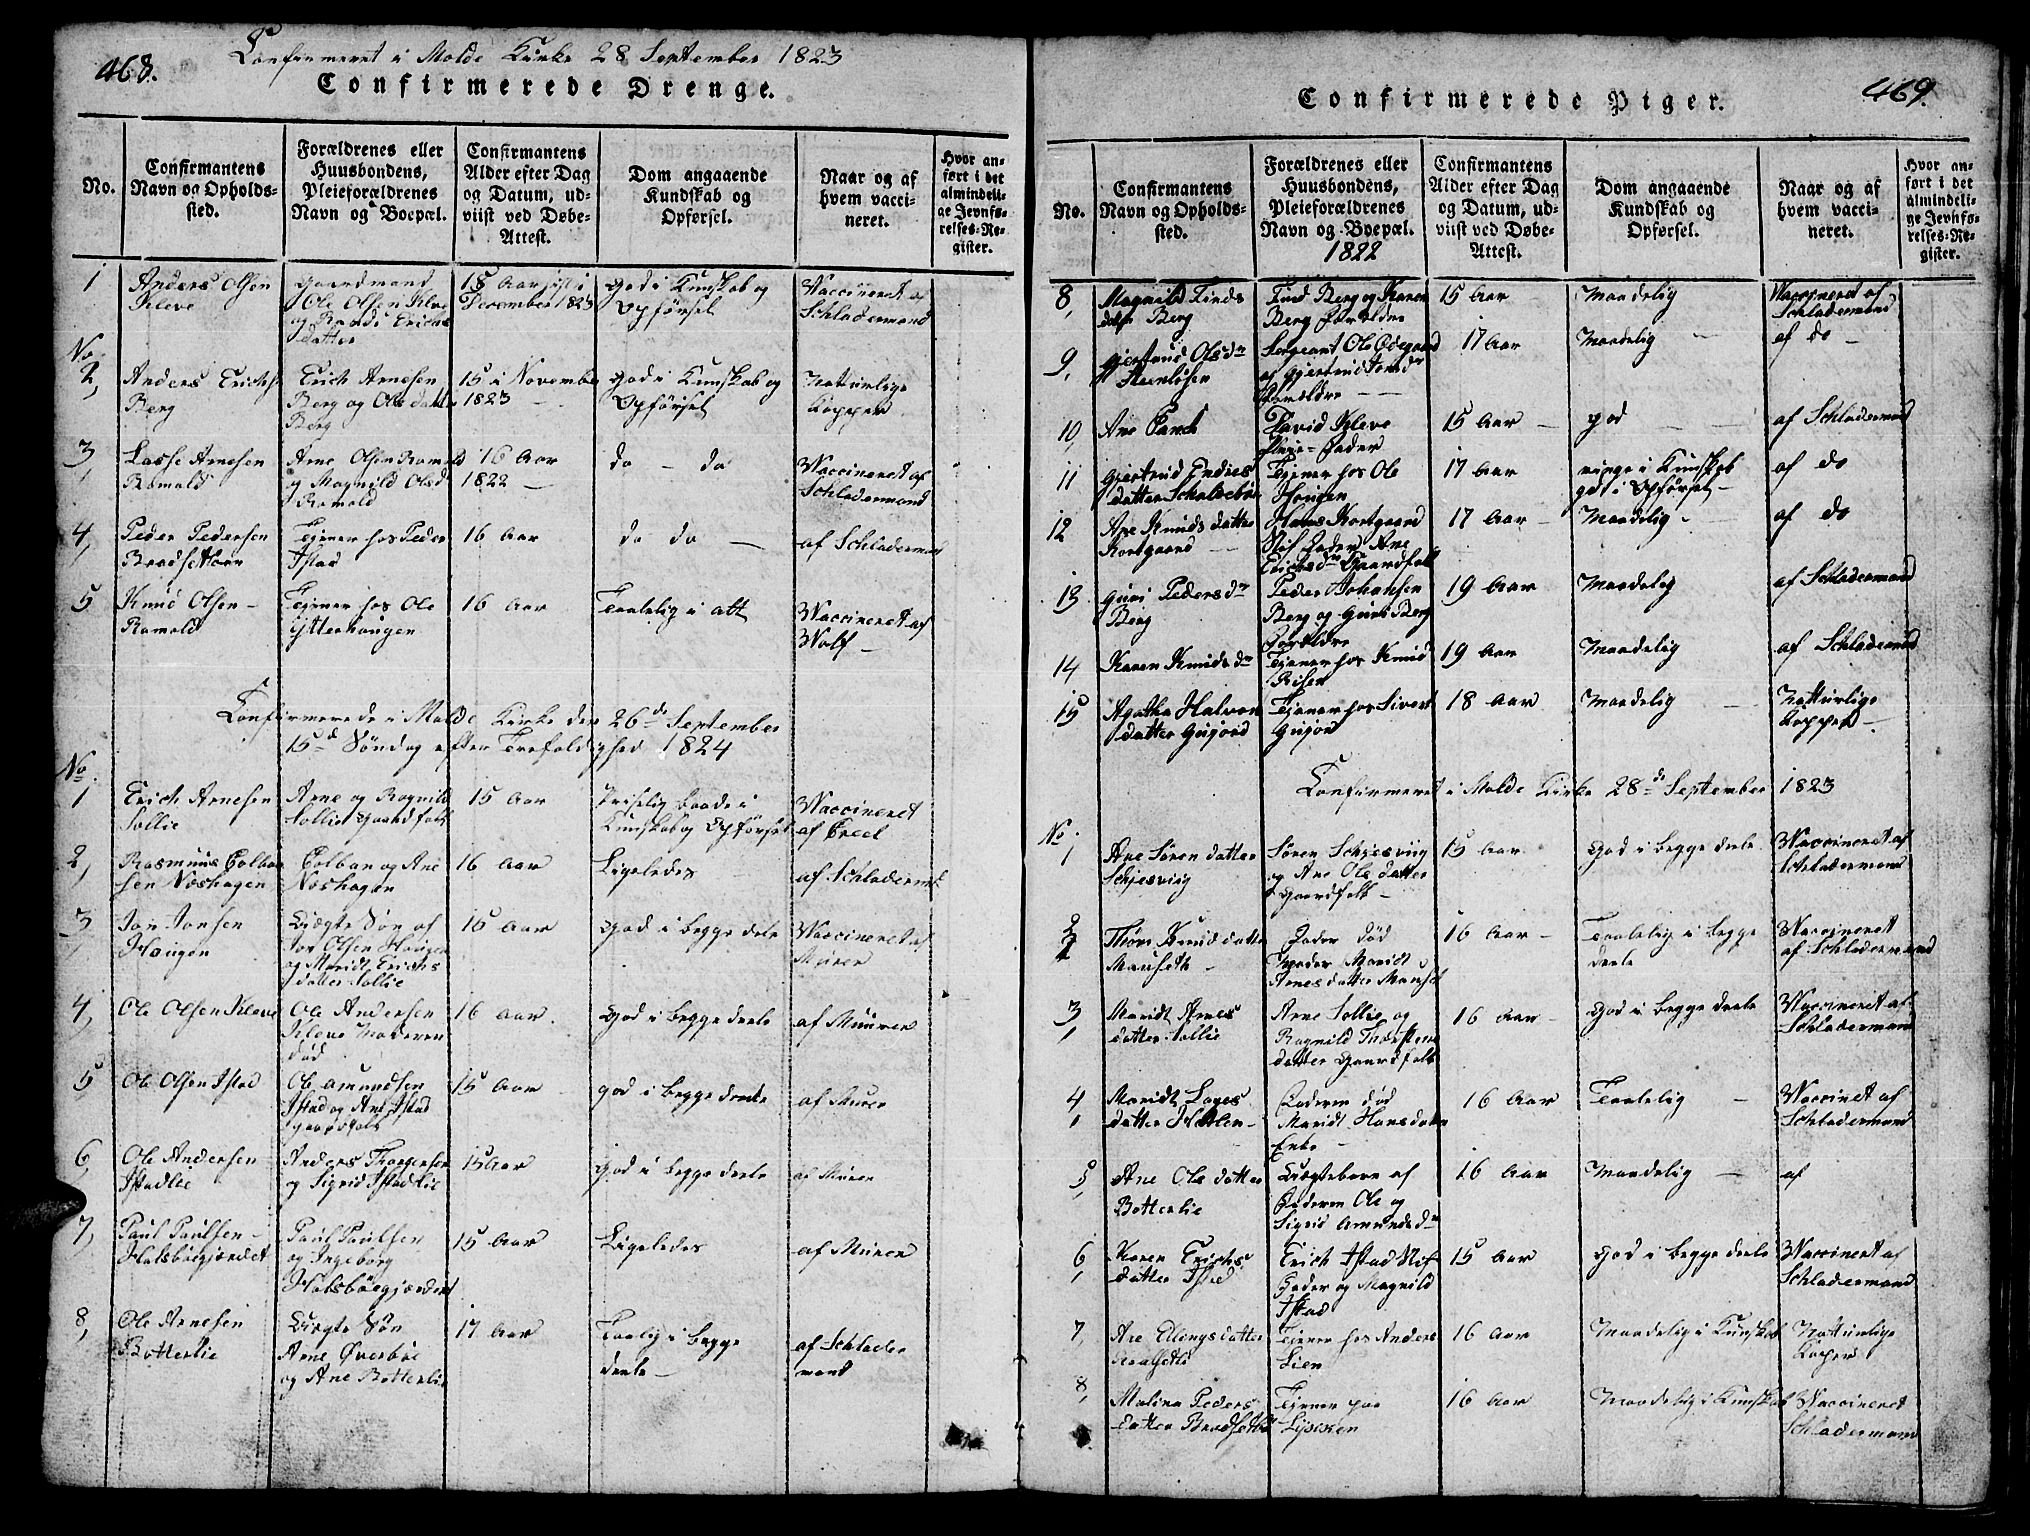 468.
Confirmeret i Molde Kirke 28 September 1823
Confirmerede Drenge.
No.
Confirmantens
Navn og Opholds-
sted.
Forældrenes eller
Huusbondens,
Pleieforældrenes
Navn og Boepæl.
Confirmantens
Alder efter Dag
og Datum, ud-
viist ved Døbe-
Attest.
Dom angaaende
Kundskab og
Opførsel.
Naar og af
hvem vacci-
neret.
Hvor an-
ført i det
almindeli-
ge Jevnfø-
relses-Re-
gister.
1
Anders Olsen
Kleve
Gaardmand
Ole Olsen Kleve
og Randi Erichs
datter
15 Aar
December 1823
God i Kunskab og
Opførsel
Vaccineret af
Schladermand
No.
2,
Anders Erichs
Berg
Erich Arnesen
Berg og
Berg
15 i November
1823 -
God i Kunskab og
Opførsel
Natturlige
Kopper
3,
Lasse Arnesen
Romold
Arne Olsen Romold
og Magnild Olsd
Romold
16 Aar
1822 -
do - do
Vaccineret af
Schladermand
4,
Peder Pedersen
Tjener hos Peder
Istad
16 Aar
do do -
af Schladermand
5
Knud Olsen -
Romold
Tjener hos Ole
Ytterhougen
16 Aar
Taalelig i alt
Vaccineret af
Wolf -
Confirmerede i Molde Kirke den 26de September
15de Søndag efter Trefoldighed 1824
No.
1
Erich Arnesen
Sollie
Arne og Ragnild
Sollie Gaardfolk
15 Aar
Priselig baade i
Kunskab og Opførsel
Vaccineret
af
2,
Rasmus Colban
sen Noshagen
Colban og Ane
Noshagen
16 Aar
Ligeledes
af Schladermd
3,
Jon Jonsen
Haugen
Uægte Søn af
Jon Olsen Haugen
og Maridt Erichs
datter Sollie
15 Aar
God i begge dele
Vaccineret af
Murer
4,
Ole Olsen Kleve
Ole Andersen
Kleve Moderen
død
16 Aar.
God i begge deele
af Murer
5
Ole Olsen Istad
Ole Amundsen
Istad og Ane Istad
Gaardfolk
15 Aar
god i begge deele
af Murer
6,
Ole Andersen
Istadlie
Anders Thorgersen
og Sigrid Istadlie
15 Aar
god i begge deele
af Murer
7,
Paul Paulsen -
Halsbøegjerdet
Paul Paulsen
og Ingeborg
Halsbøegjerdet
15 Aar
Ligeledes
af Murer
8,
Ole Arnesen
Botterlie
Uægte Søn
Arne Øverbøe
og Ane Botterlie
17 Aar
Taalig i begge
deele -
af Schlader
mand
469.
Confirmerede Piger.
No.
Confirmantens
Navn og Opholds-
sted.
Forældrenes eller
Huusbondens,
Pleieforældrenes
Navn og Boepæl.
1822
Confirmantens
Alder efter Dag
og Datum, ud-
viist ved Døbe-
Attest.
Dom angaaende
Kundskab og
Opførsel.
Naar og af
hvem vacci-
neret.
Hvor an-
ført i det
almindeli-
ge Jevnfø-
relses-Re-
gister.
8,
Magnild Finds
datr Berg
Find Berg og Karen
Berg Forældre
15 Aar -
Maadelig
Vaccineret af
Schladermand
9,
Gjertrud Olsdr
Sergeant Ole Ødegaard
og Gjertrud
Forældre - -
17 Aar
Maadelig -
af do -
10,
Ane
David Kleve
Pleie-Fader
15 Aar -
god -
af Schladermand
11
Gjertrud Endres
datter
Tjener hos Ole
Hougen
17 Aar
ringe i Kunskab
god i Opførsel -
af do
12
Ane Knuds datter
Kortgaard - -
Hans Kortgaard
Stif Fader Ane
Erichsdr Gaardfolk
17 Aar -
Maadelig -
af do
13,
Guri Pedersdr
Berg
Peder Johansen
Berg og Guri Berg
Forældre
19 Aar
Maadelig
af Schladermand
14
Karen Knudsdr
Tjener hos Knud
Risen
19 Aar
Maadelig
af Schladermand
15
Agatha Halvor
datter Gujord
Tjener hos Sivert
Gujord
18 Aar
Maadelig -
Natturlige
Kopper -
Confirmeret i Molde Kirke 28de September 1823
No.
1,
Ane Søren datter
Schjesviig
Søren Schjesviig
og Ane Ole datter
Gaardfolk -
15 Aar
God i begge deele
Vaccineret af
Schladermand
2,
Knud datter
Mauseth -
Fader død
Moder Maridt
Arnes datter
16 Aar -
Taalelig i begge
deele
Vaccineret
af Schladermand
3,
Maridt Arnes
datter Sollie
Arne Sollie og
Ragnild Thorstens
datter Gaardfolk
16 Aar -
God i begge deele
Vaccineret af
Schladermand
4,
Maridt
datter
Faderen død
Maridt Hansdatter
Enke -
16 Aar
Taalelig -
Vaccinet af
Schladermand
5,
Ane Ole datter
Botterlie
Uægtebarn af
Faderen Ole og
Sigrid Amundsdr
16 Aar
Maadelig -
af
6,
Karen Erichs
datter Istad
Erich Istad Stif
Fader og Magnild
Istad
15 Aar
God i begge deele
Vaccineret af
Schladermand
7,
Ane Ellings datter
Tjener hos Anders
Lien
16 Aar
Maadelig i Kunskab
Natturlige
Koper
8,
Malina Peders
datter
Tjener paa
16 Aar
Maadelig i Kunskab
Vaccineret
Schladermand